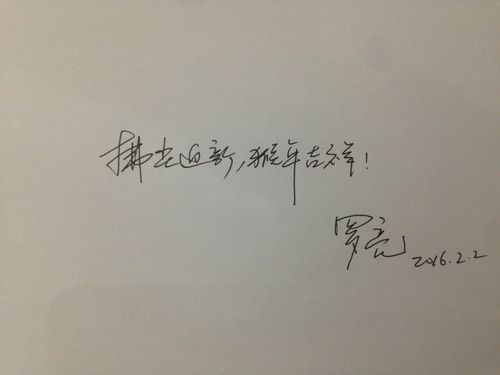 拂尘迎新,猴年吉祥!
罗亮
2016.2.2